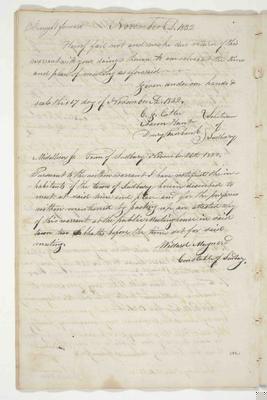 November A.D. 1832
Hereof fail not and make due return of this
warrant with your doings thereon to ourselves at the time
and place of meeting aforesaid.
Given under our hands &
seals this 17 day of November A.D. 1832.
C. G. Cutler
Selectmen
of
Sudbury
Middlesex Ss. Town of Sudbury
Pursuant to the within warrant I have notified the in-
habitants of the town of Sudbury herein described to
meet at said time and place and for the purposes
within mentioned by posting up an attested copy
of this warrant at the public Meetinghouse in said
town two Sabbaths before the time set for said
meeting.
Maynard
Constable of Sudbury